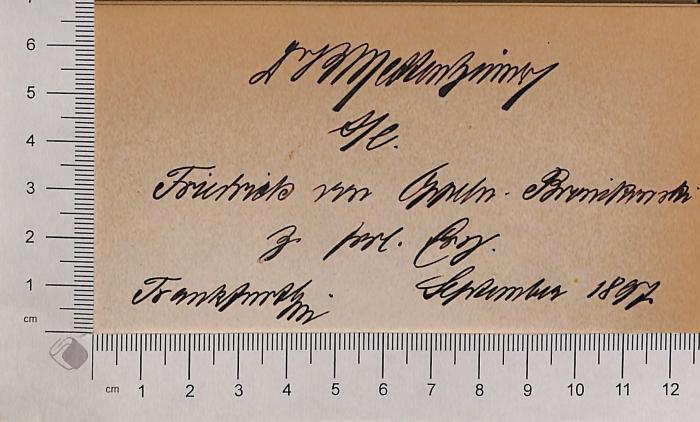 Dr
s/l.
Friedrich von Oppeln-Bronikowski
z.
Frankfurt a/M
September 1897
6
5
4
3
2
1
cm
cm 1 2 3 4 5 6 7 8 9 10 11 12